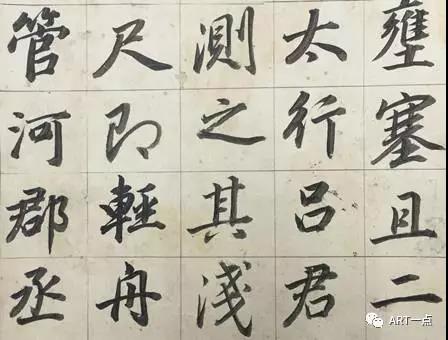 壅塞且二
太行呂君
測之其淺
尺即輕舟
管河郡丞
ART一点